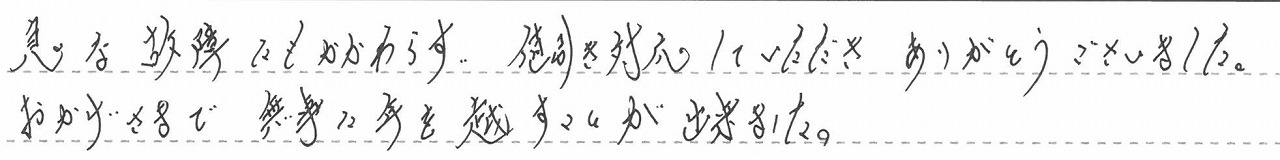 急な故障にもかかわらず、迅速に対応していただき ありがとうございました。
おかげさまで 無事に年を越すことが出来ました。